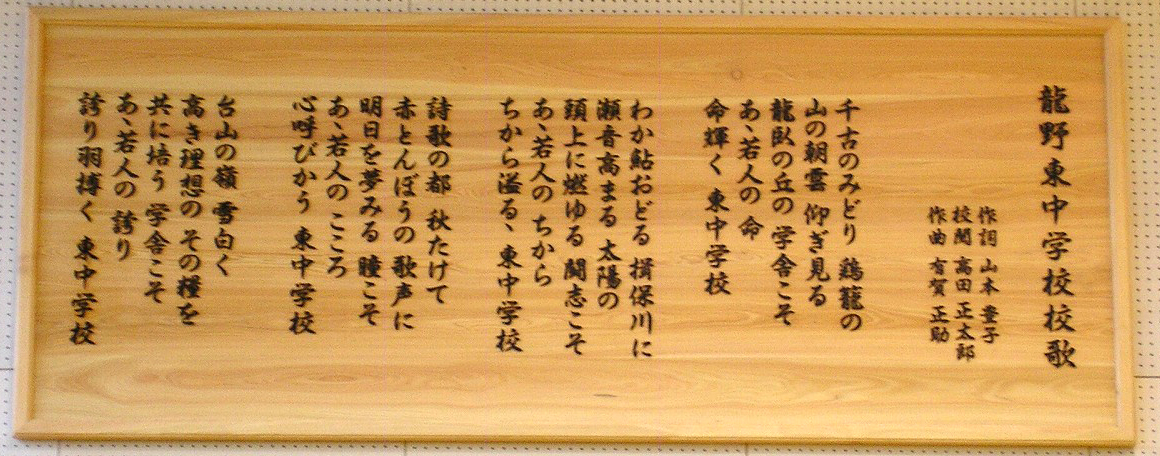 龍野東中学校校歌
作詞 山本 童子
校閲 高田 正太郎
作曲 有賀 正助
千古のみどり 鶏籠の
山の朝雲 仰ぎ見る
龍臥の丘の 学舎こそ
あゝ若人の 命
命輝く 東中学校
わか鮎おどる 揖保川に
瀬音高まる 太陽の
頭上に燃ゆる 闘志こそ
あゝ若人の ちから
ちから溢る、東中学校
詩歌の都 秋たけて
赤とんぼうの 歌声に
明日を夢みる 瞳こそ
あゝ若人の こころ
心呼びかう 東中学校
台山の嶺 雪白く
高き理想の その糧を
共に培う 学舎こそ
あゝ若人の 誇り
誇り羽搏く 東中学校